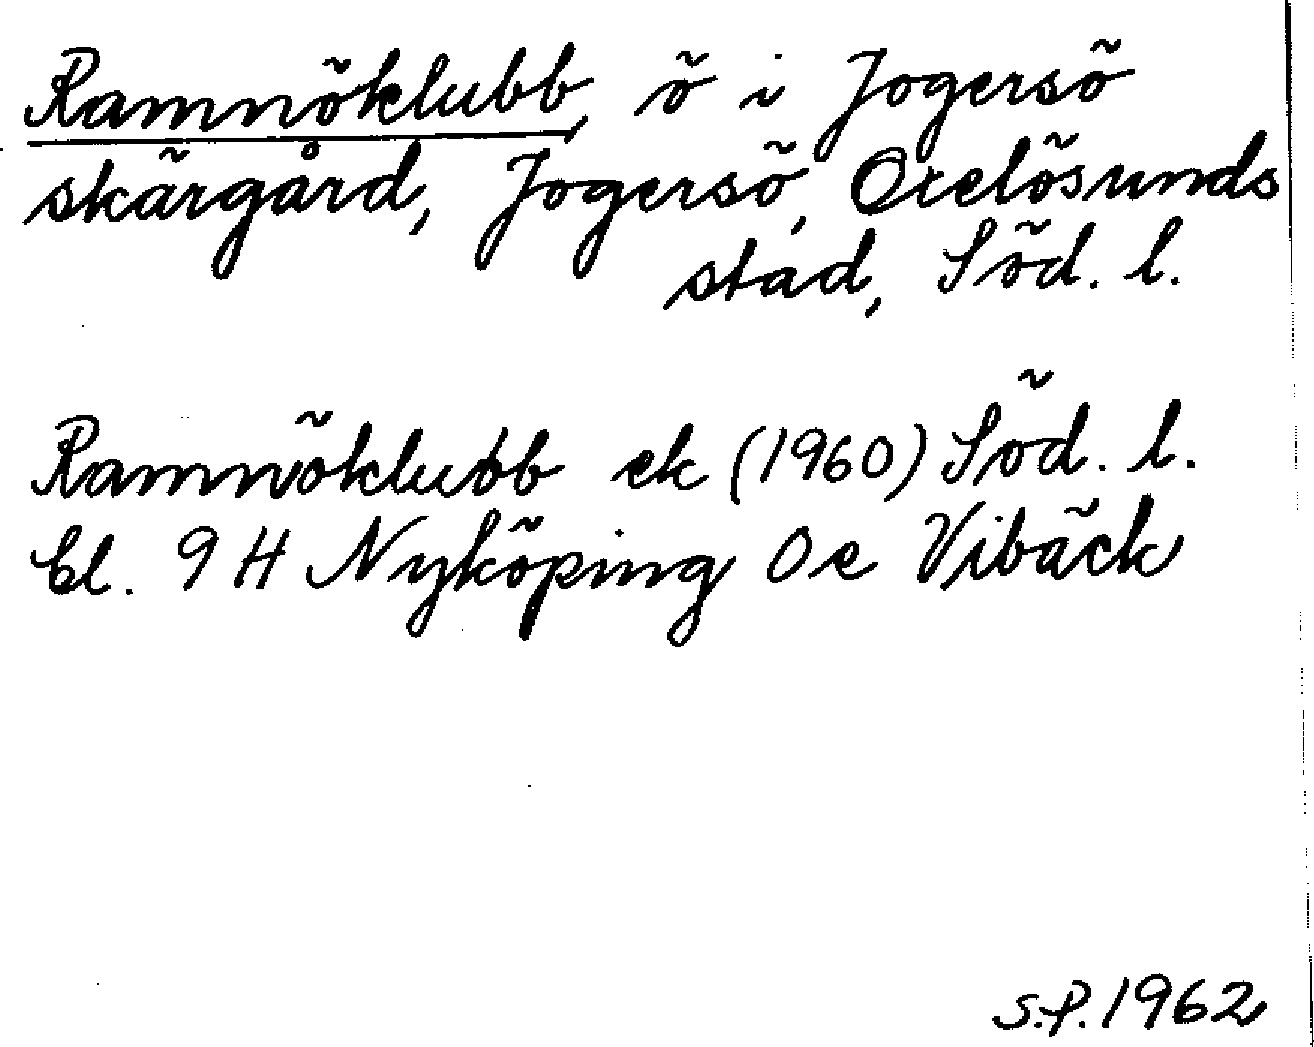 Ramnöklubb, ö i Jogersö
skärgård, Jogersö, Oxelösunds
stad, Söd. l.
Ramnöklubb ek (1960) Söd. l.
bl. 9 H Nyköping Oe Vibäck
S.P. 1962